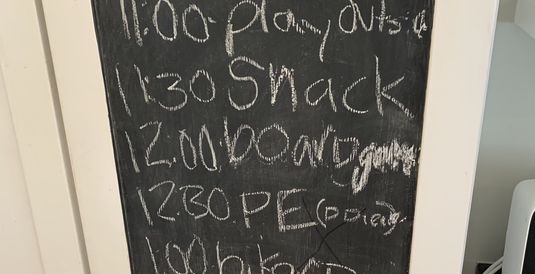 11:00 play outsid
11:30 Snack
12:00 board game
12:30 PE
1:00